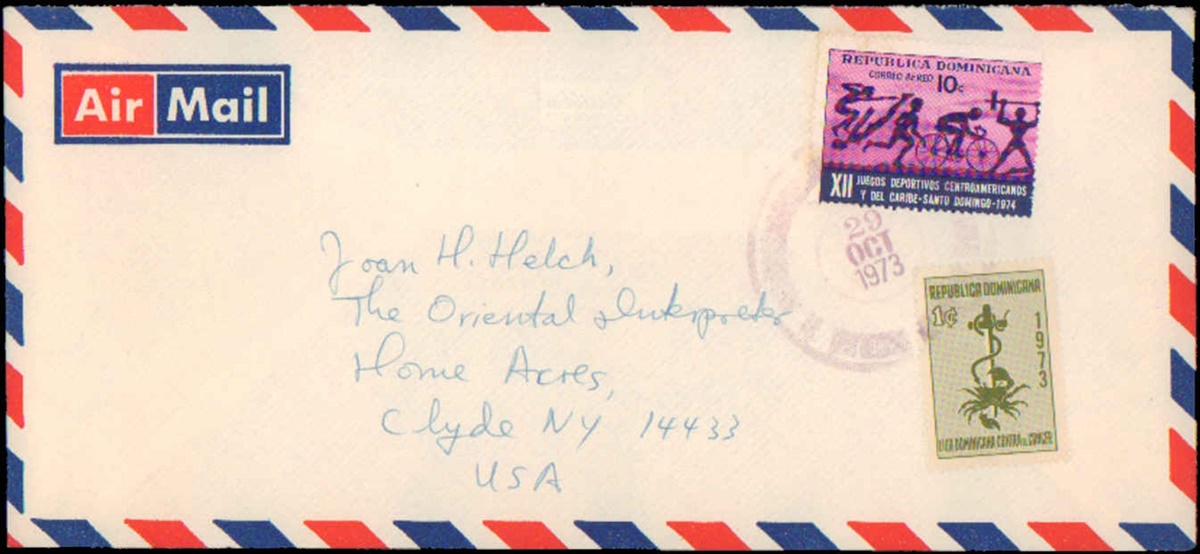 Air Mail
REPUBLICA DOMINICANA
CORREO AEREO 10c
XII JUEGOS DEPORTIVOS CENTROAMERICANOS
Y DEL CARIBE-SANTO DOMINGO-1974
29
OCT
1973
REPUBLICA DOMINICANA
1¢
1973
LIGA DOMINICANA CONTRA EL CANCER
Joan H. Helch,
The Oriental Interpreter
Home Acres,
Clyde NY 14433
USA